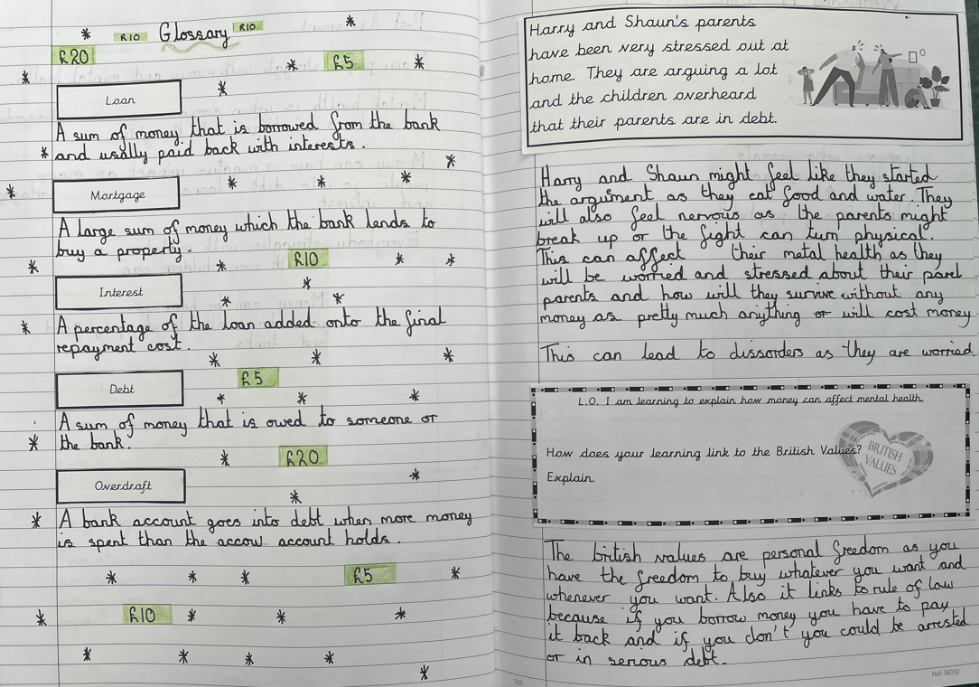 R10 Glossary R10
£20
£5
Loan
A sum of money that is borrowed from the bank
and usally paid back with interests.
Mortgage
A large sum of money which the bank lends to
buy a property.
£10
Interest
A percentage of the loan added onto the final
repayment cost.
£5
Debt
A sum of money that is owed to someone or
the bank.
£20
Overdraft
A bank account goes into debt when more money
is spent than the accow account holds.
£5
£10
Harry and Shaun's parents
have been very stressed out at
home. They are arguing a lot
and the children overheard
that their parents are in debt.
Harry and Shaun might feel like they started
the argument as they eat food and water. They
will also feel nervous as the parents might
break up or the fight can turn physical.
This can affect their metal health as they
will be worried and stressed about their parel
parents and how will they survive without any
money as pretty much anything or will cost money
This can lead to dissorders as they are worried.
L.O. I am learning to explain how money can affect mental health.
How does your learning link to the British Values?
Explain.
BRITISH
VALUES
The british values are personal freedom as you
have the freedom to buy whatever you want and
whenever you want. Also it links to rule of law
because if you borrow money you have to pay
it back and if you don't you could be arrested
or in serious debt.